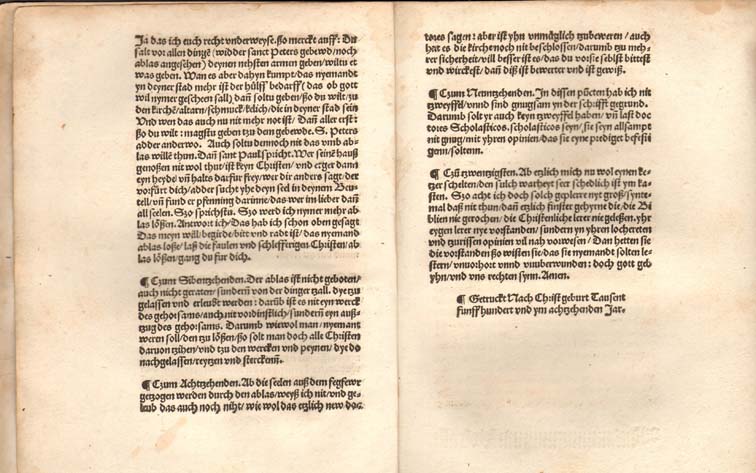 Ja das ich euch recht vnderweyse. ßo merckt auff: Du
salt vor allen dingē (widder sanct Peters gebewd/noch
ablas angesehen) deynen nehsten armen geben/wiltu et
was geben. Wan es aber dahyn kumpt/das nyemandt
yn deyner stad mehr ist der hülff bedarff (das ob gott
wil nymer gescheen sall) dañ soltu geben/ßo du wilt/zu
den kirchē/altarn/schmuck/kelich/die in deyner stad sein
Vnd wen das auch nu nit mehr not ist/ Dañ aller erst:
ßo du wilt: magstu geben tzu dem gebewde. S. Peters
adder anderwo. Auch soltu dennoch nit das vmb ab-
las willē thun. Dañ sant Paul spricht. Wer seinē hauß
genoßen nit wol thut/ist keyn Christen/ vnd erger dann
eyn heyde vñ halts darfur frey/wer dir anders sagt/der
vorfürt dich/adder sucht yhe deyn sel in deynem Beu-
tell/vñ fund er pfenning darinne/das wer im lieber dañ
all seelen. Szo sprichstu. Szo werd ich nymer mehr ab-
las lößen. Antwort ich/Das hab ich schon oben gesagt
Das meyn will/begirde/bitt vnd radt ist/das nyemand
ablas loße/laß die faulen vnd schlefferigen Christen/ab
las lößen/gang du fur dich.
¶ Czum Sibentzehenden. Der ablas ist nicht geboten/
auch nicht geraten/sundern von der dinger tzall. dye tzu
gelassen vnd erleubt werden: darüb ist es nit eyn werck
des gehorsams/auch nit vordinstlich/sundern eyn auß-
tzug des gehorsams. Darumb wiewol man/nyemant
weren soll/den tzu lößen/ßo solt man doch alle Christen
daruon tzihen/vnd tzu den wercken vnd peynen/dye do
nachgelassen/reytzen vnd sterckenn.
¶ Czum Achtzehenden. Ab die seelen auß dem fegfewr
getzogen werden durch den ablas/weyß ich nit/vnd ge-
leub das auch noch niht/ wie wol das etzlich new doc
tores sagen: aber ist yhn vnmüglich tzubeweren/auch
hat es die kirche noch nit beschlossen/darumb tzu meh-
rer sicherheit/vill besser ist es/das du vor sie selbst bittest
vnd wirckest/ dañ diß ist bewerter vnd ist gewiß.
¶ Czum Newntzehenden. In dissen pūcten hab ich nit
tzweyffel/vnnd sind gnugsam yn der schrifft gegrund.
Darumb solt yr auch keyn tzweyffel haben/ vñ last doc
tores Scholasticos. scholasticos seyn/ sie seyn allsampt
nit gnug/mit yhren opinien/das sie eyne prediget befesti
genn/soltenn.
¶ Czū zwentzigsten. Ab etzlich mich nu wol eynen ke-
tzer schelten/den sulch warheyt seer schedlich ist ym ka-
sten. Szo acht ich doch solch geplerre nyt groß/synte-
mal daß nit thun/dañ etzlich finster gehyrne die/die Bi
blien nie gerochen/die Christenliche lerer nie geleßen. yhr
eygen lerer nye vorstanden/ sundern yn yhren lochereten
vnd zurissen opinien vil nah vorwesen/ Dan hetten sie
die vorstanden ßo wissten sie/das sie nyemandt solten le-
stern/vnuorhort vnnd vnuberwunden: doch gott geb
yhn/vnd vns rechten synn. Amen.
¶ Getruckt Nach Christ geburt Tausent
funffhundert vnd ym achtzehenden Jar.